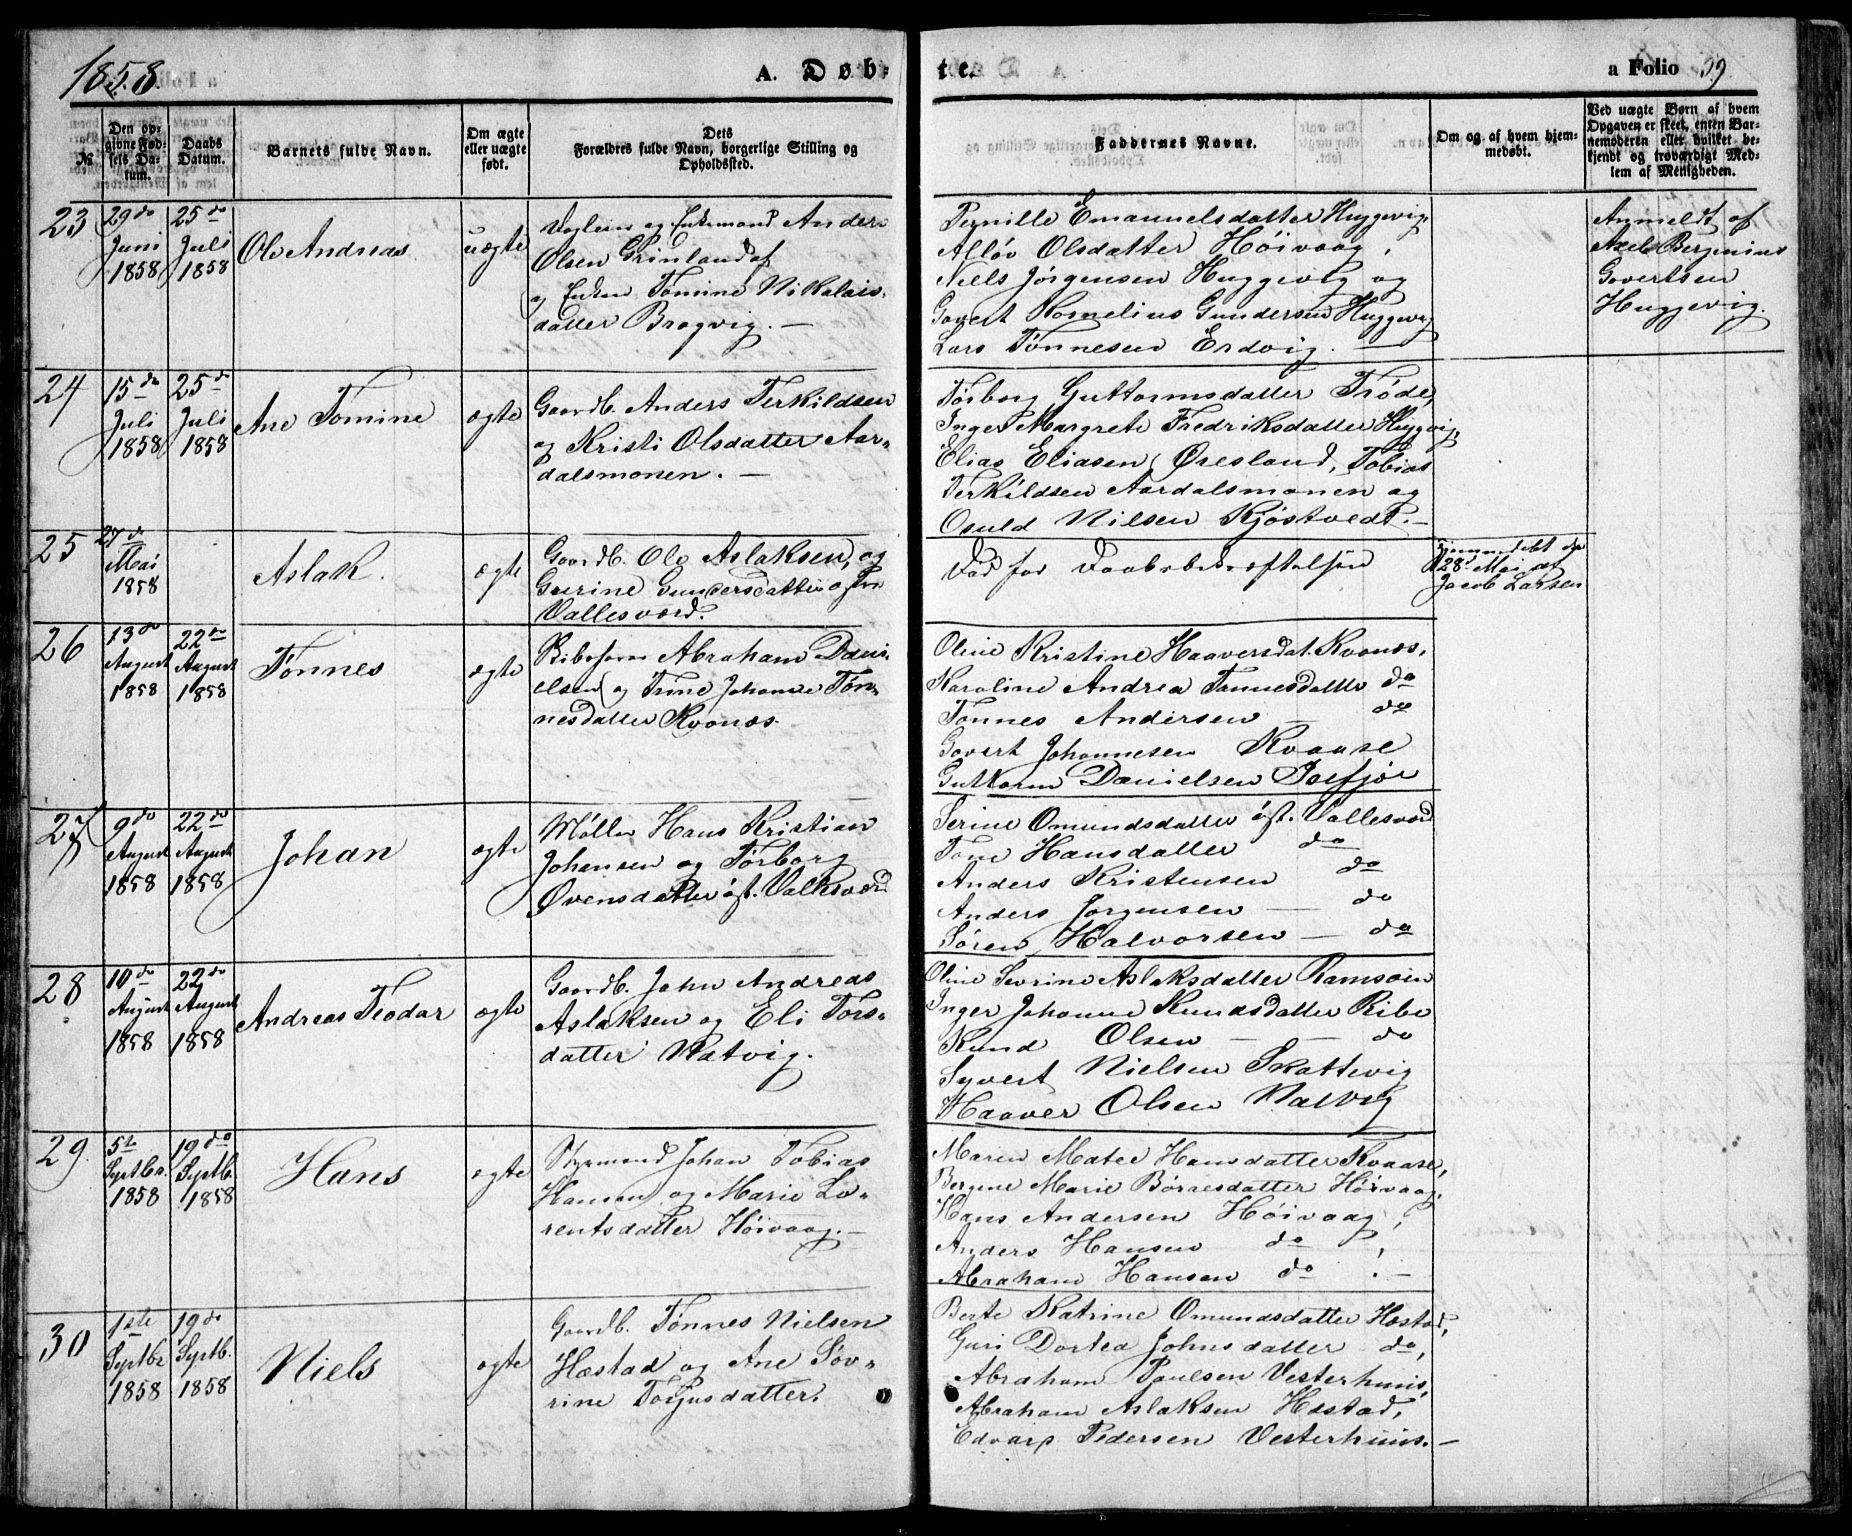 1858
A. Døb-
te.
a Folio 59
№
Den op-
givne Fød-
sels Da-
tum.
Daabs
Datum.
Barnets fulde Navn.
Om ægte
eller uægte
født.
Dets
Forældres fulde Navn, borgerlige Stilling og
Opholdssted.
Faddernes Navne.
Om og af hvem hjem-
medøbt.
Ved uægte Børn af hvem
Opgaven er skeet, enten Bar-
nemoderen eller hvilket be-
kjendt og troværdigt Med-
lem af Menigheden.
23
29 do
Juni
1858
25 do
Juli
1858
Ole Andreas
uægte
og Enkemand Anders
Olsen Grinland af
og Enken Tomine Nikolais-
datter Bragvig. —
Pernille Emanuelsdatter Huggevig,
Olsdatter Høivaag,
Niels Jørgensen Huggevig og
Govert Kornelius Gundersen Huggevig
Lars Tønnesen Erdvig. —
Anmeldt af
Axel Bergenius
Govertsen
Huggevig.
24
15 do
Juli
1858
25 do
Juli
1858
Ane Tomine
ægte
Gaardb. Anders Terkildsen
og Kristi Olsdatter Aar-
dalsmonen. —
Torborg Guttormsdatter Trøde,
Inger Margrete Fredriksdatter Huggevig,
Elias Eliasen Øresland, Tobias
Terkildsen Aardalsmonen og
Osuld Nilsen Kjøstvedt. —
25
27 d
Mai
1858
Aslak.
ægte
Gaardb. Ole Aslaksen og
Gurine Gundersdatter
Vallesværd.
Død før Daabsbekræftelsen
Hjemmedøbt d
28 Mai af
Jacob Larsen
26
13 do
August
1858
22 do
August
1858
Tønnes
ægte
Abraham Dani-
elsen og Trine Johanne Tøn-
nesdatter Kvanæs.
Oline Kristine Haaversdat. Kvanæs,
Karoline Andrea Tønnesdatter do
Tønnes Andersen — do
Govert Johannesen Kvaase
Guttorm Danielsen
27
9 do
August
1858
22 do
August
1858
Johan
ægte
Møller Hans Kristian
Johansen og Torborg
Øvensdatter øst. Vallesværd
Serine Omundsdatter øst. Vallesværd
Tone Hansdatter do
Anders Kristensen do
Anders Jørgensen — do
Søren Halvorsen — do
28
10 do
August
1858
22 do
August
1858
Andreas Teodor
ægte
Gaardb. John Andreas
Aslaksen og Eli Tors-
datter Natvig.
Oline Serine Aslaksdatter Ramsøen
Inger Johanne Knudsdatter Ribe
Knud Olsen — — do
Syvert Nielsen Skottevig
Haaver Olsen Natvig
29
5te
Septbr.
1858
19 do
Septb.
1858
Hans
ægte
Styrmand Johan Tobias
Hansen og Marie Lo-
rentsdatter Høivaag. —
Maren Matea Hansdatter Kvaase,
Bergine Marie Børresdatter Høivaag,
Hans Andersen Høivaag,
Anders Hansen do,
Abraham Hansen do. —
30
1ste
Septbr
1858
19 do
Septb.
1858
Niels
ægte
Gaardb. Tønnes Nielsen
Hæstad og Ane Sev-
rine Torjusdatter.
Berte Katrine Omundsdatter Hæstad,
Guri Dortea Johnsdatter do,
Abraham Paulsen Vesterhuus,
Abraham Aslaksen Hæstad,
Edvard Pedersen Vesterhuus. —